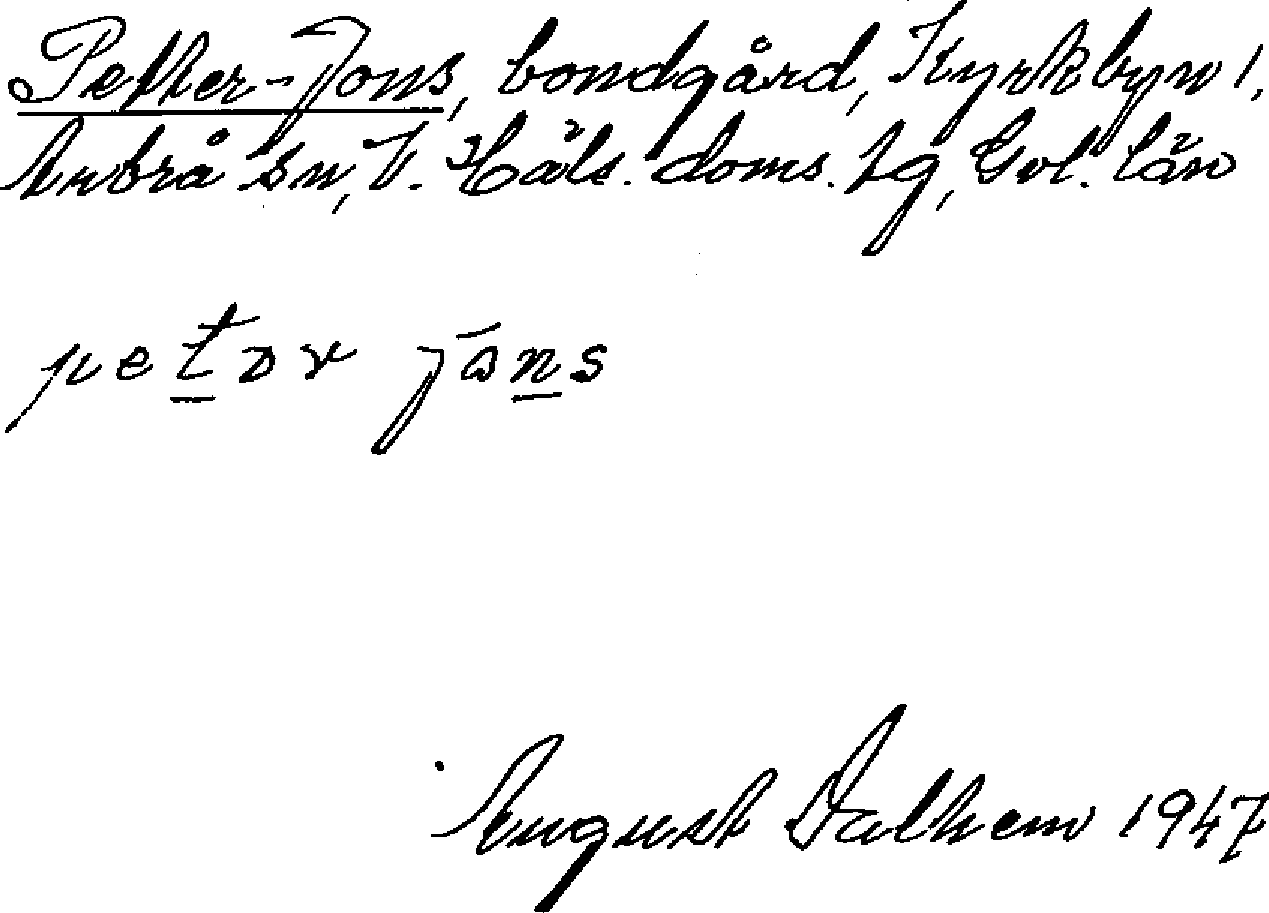 Petter-Jons, bondgård, Kyrkbyn 1,
Arbrå sn, V. Häls. doms. tg, Gvl. län
petər jōns
August Dalhem 1947